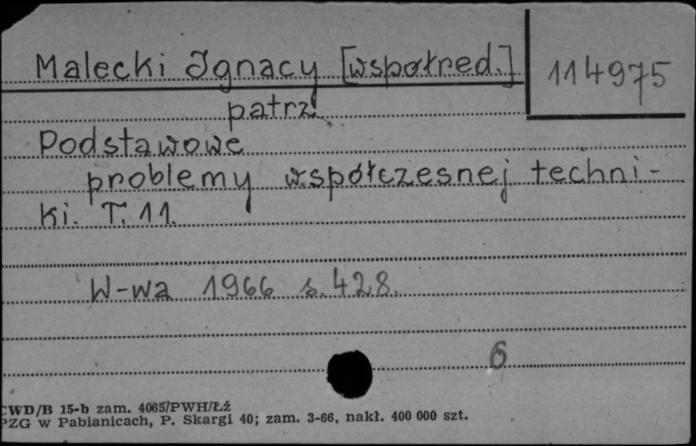 Malecki Ignacy [współred.] 114975
patrz
Podstawowe
problemy współczesnej techni-
ki. T. 11.
W-wa 1966 s. 428.
6
CWD/B 15-b zam. 4065/PWH/Łź
PZG w Pabianicach, P. Skargi 40; zam. 3-66, nakł. 400 000 szt.